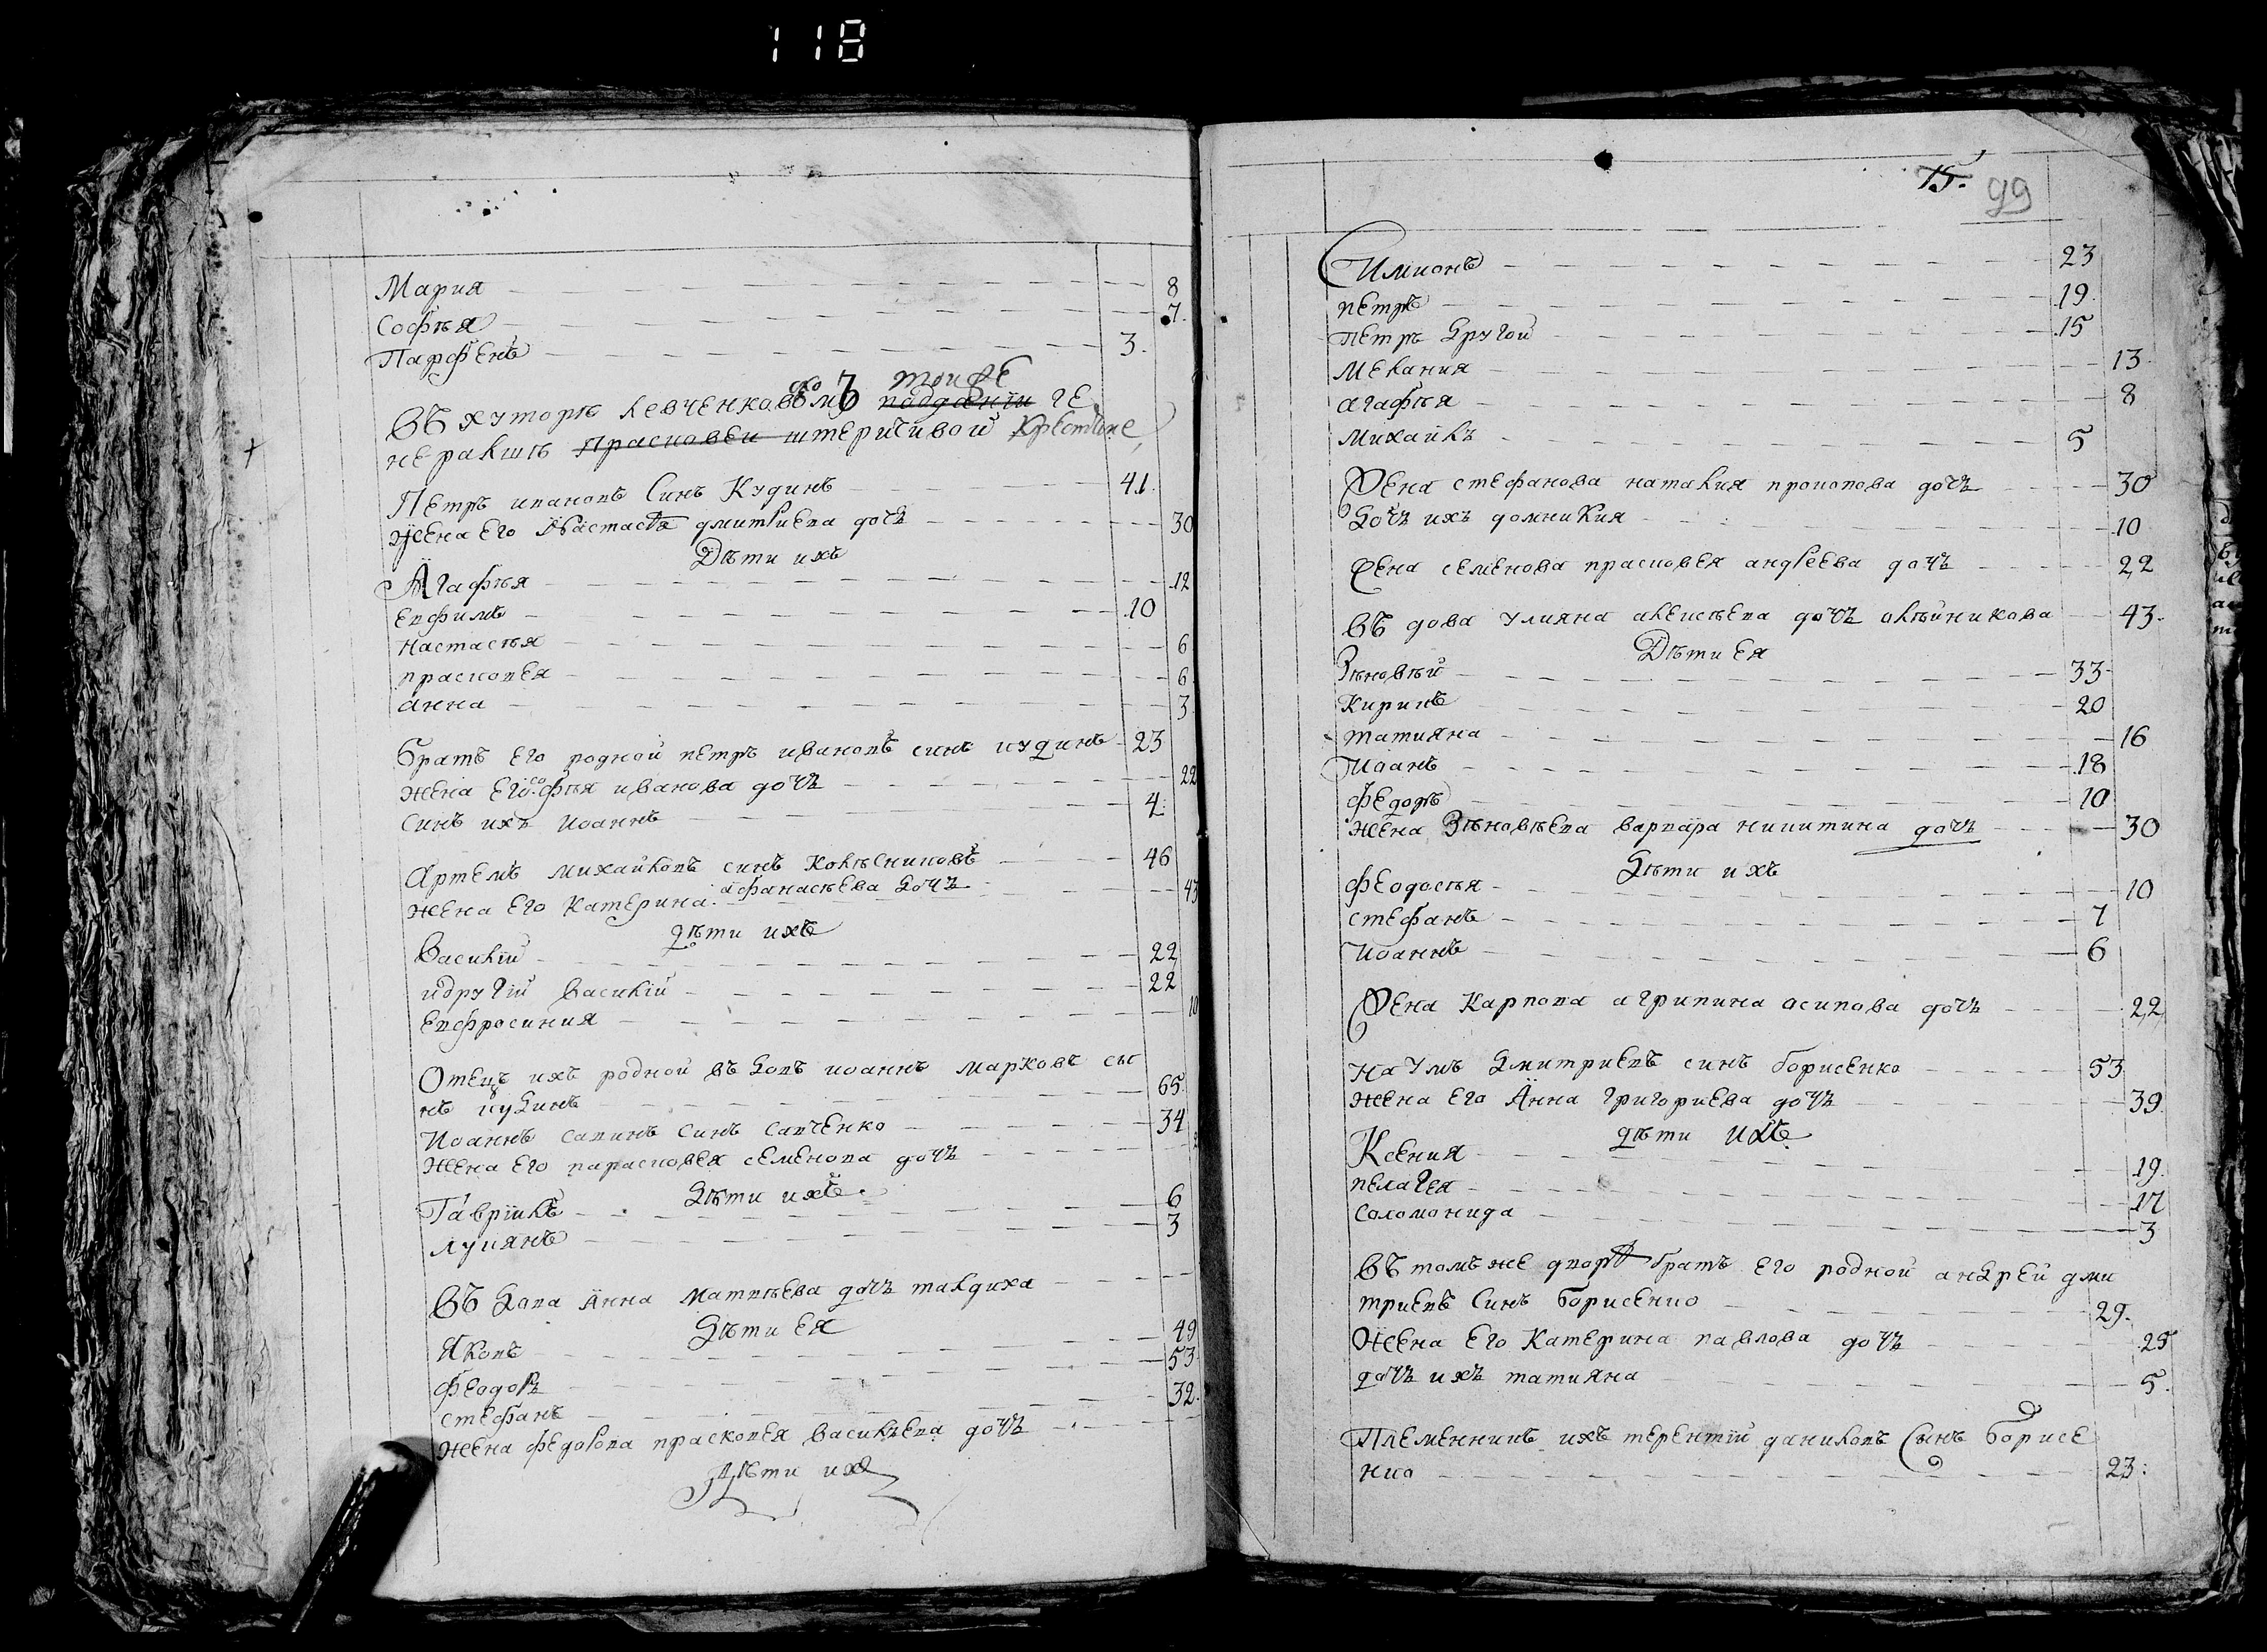 118
Мария 8
Софѣя 7.
Парфенъ 3.
Въ хуторѣ Левченковомъ ско тоижЕ подданіи ге
нералшѣ Прасковеи штеричивой Хрестине
Петръ ивановъ Синъ Кудинъ 41.
Жена Его Анастасѣя дмитриева дочь 30
Дѣти ихъ
Агафѣя 12
Евфимъ 10
Настасѣя 6
прасковея 6
анна 3
Братъ Его родной петръ ивановъ синъ кудинъ 23
Жена Его софѣя иванова дочь 22
Синъ ихъ иоаннъ 4:
Артемъ михайловъ синъ Колѣсниковъ 46
Жена Его Катерина афанасѣева дочь 43
дѣти ихъ
Василій 22
идругій василій 22
Евфросиния 10
Отецъ ихъ родной въдовъ иоаннъ марковъ сы
нъ кудинъ 65.
Иоаннъ савинъ синъ савченко 34
Жена Его параскoвея семенова дочь
Дѣти ихъ
Гаврiилъ 6
лукиянъ 3
Въдова Анна матвѣева дочь талдиха
Дѣти Ея 49
Яковъ 53
Феодоръ 32.
Стефанъ
Жена федорова прасковея василъева дочь
Дѣти ихъ
15. 99
Симионъ 23
петръ 19.
петръ другой 15
мелания 13.
агафѣя 8
михайлъ 5
Жена стефанова наталия прокопова дочь 30
дочь ихъ домникия 10
Жена семенова прасковея андреева дочь 22
Въдова улияна алексѣева дочь олѣйникова 43.
Дѣти Ея
Зѣновѣй 33
Кирилъ 20
татияна 16
Иоанъ 18
федоръ 10
Жена Зѣновѣева варвара никитина дочь 30
Дѣти ихъ
феодосѣя 10
стефанъ 7
иоаннъ 6
Жена Карпова агрипина осипова дочь 22
Наумъ дмитриевъ синъ борисенко 53
Жена Его Анна григориева дочь 39.
дѣти ихъ
Ксения 19.
пелагея 17
соломонида 3
Въ томъ же дворѣ братъ Его родной андрей дми
триевъ Синъ борисенко 29.
Жена Его Катерина павлова дочь 25
дочь ихъ татияна 5.
Племенникъ ихъ терентий даниловъ Сынъ борисе
нко 23: